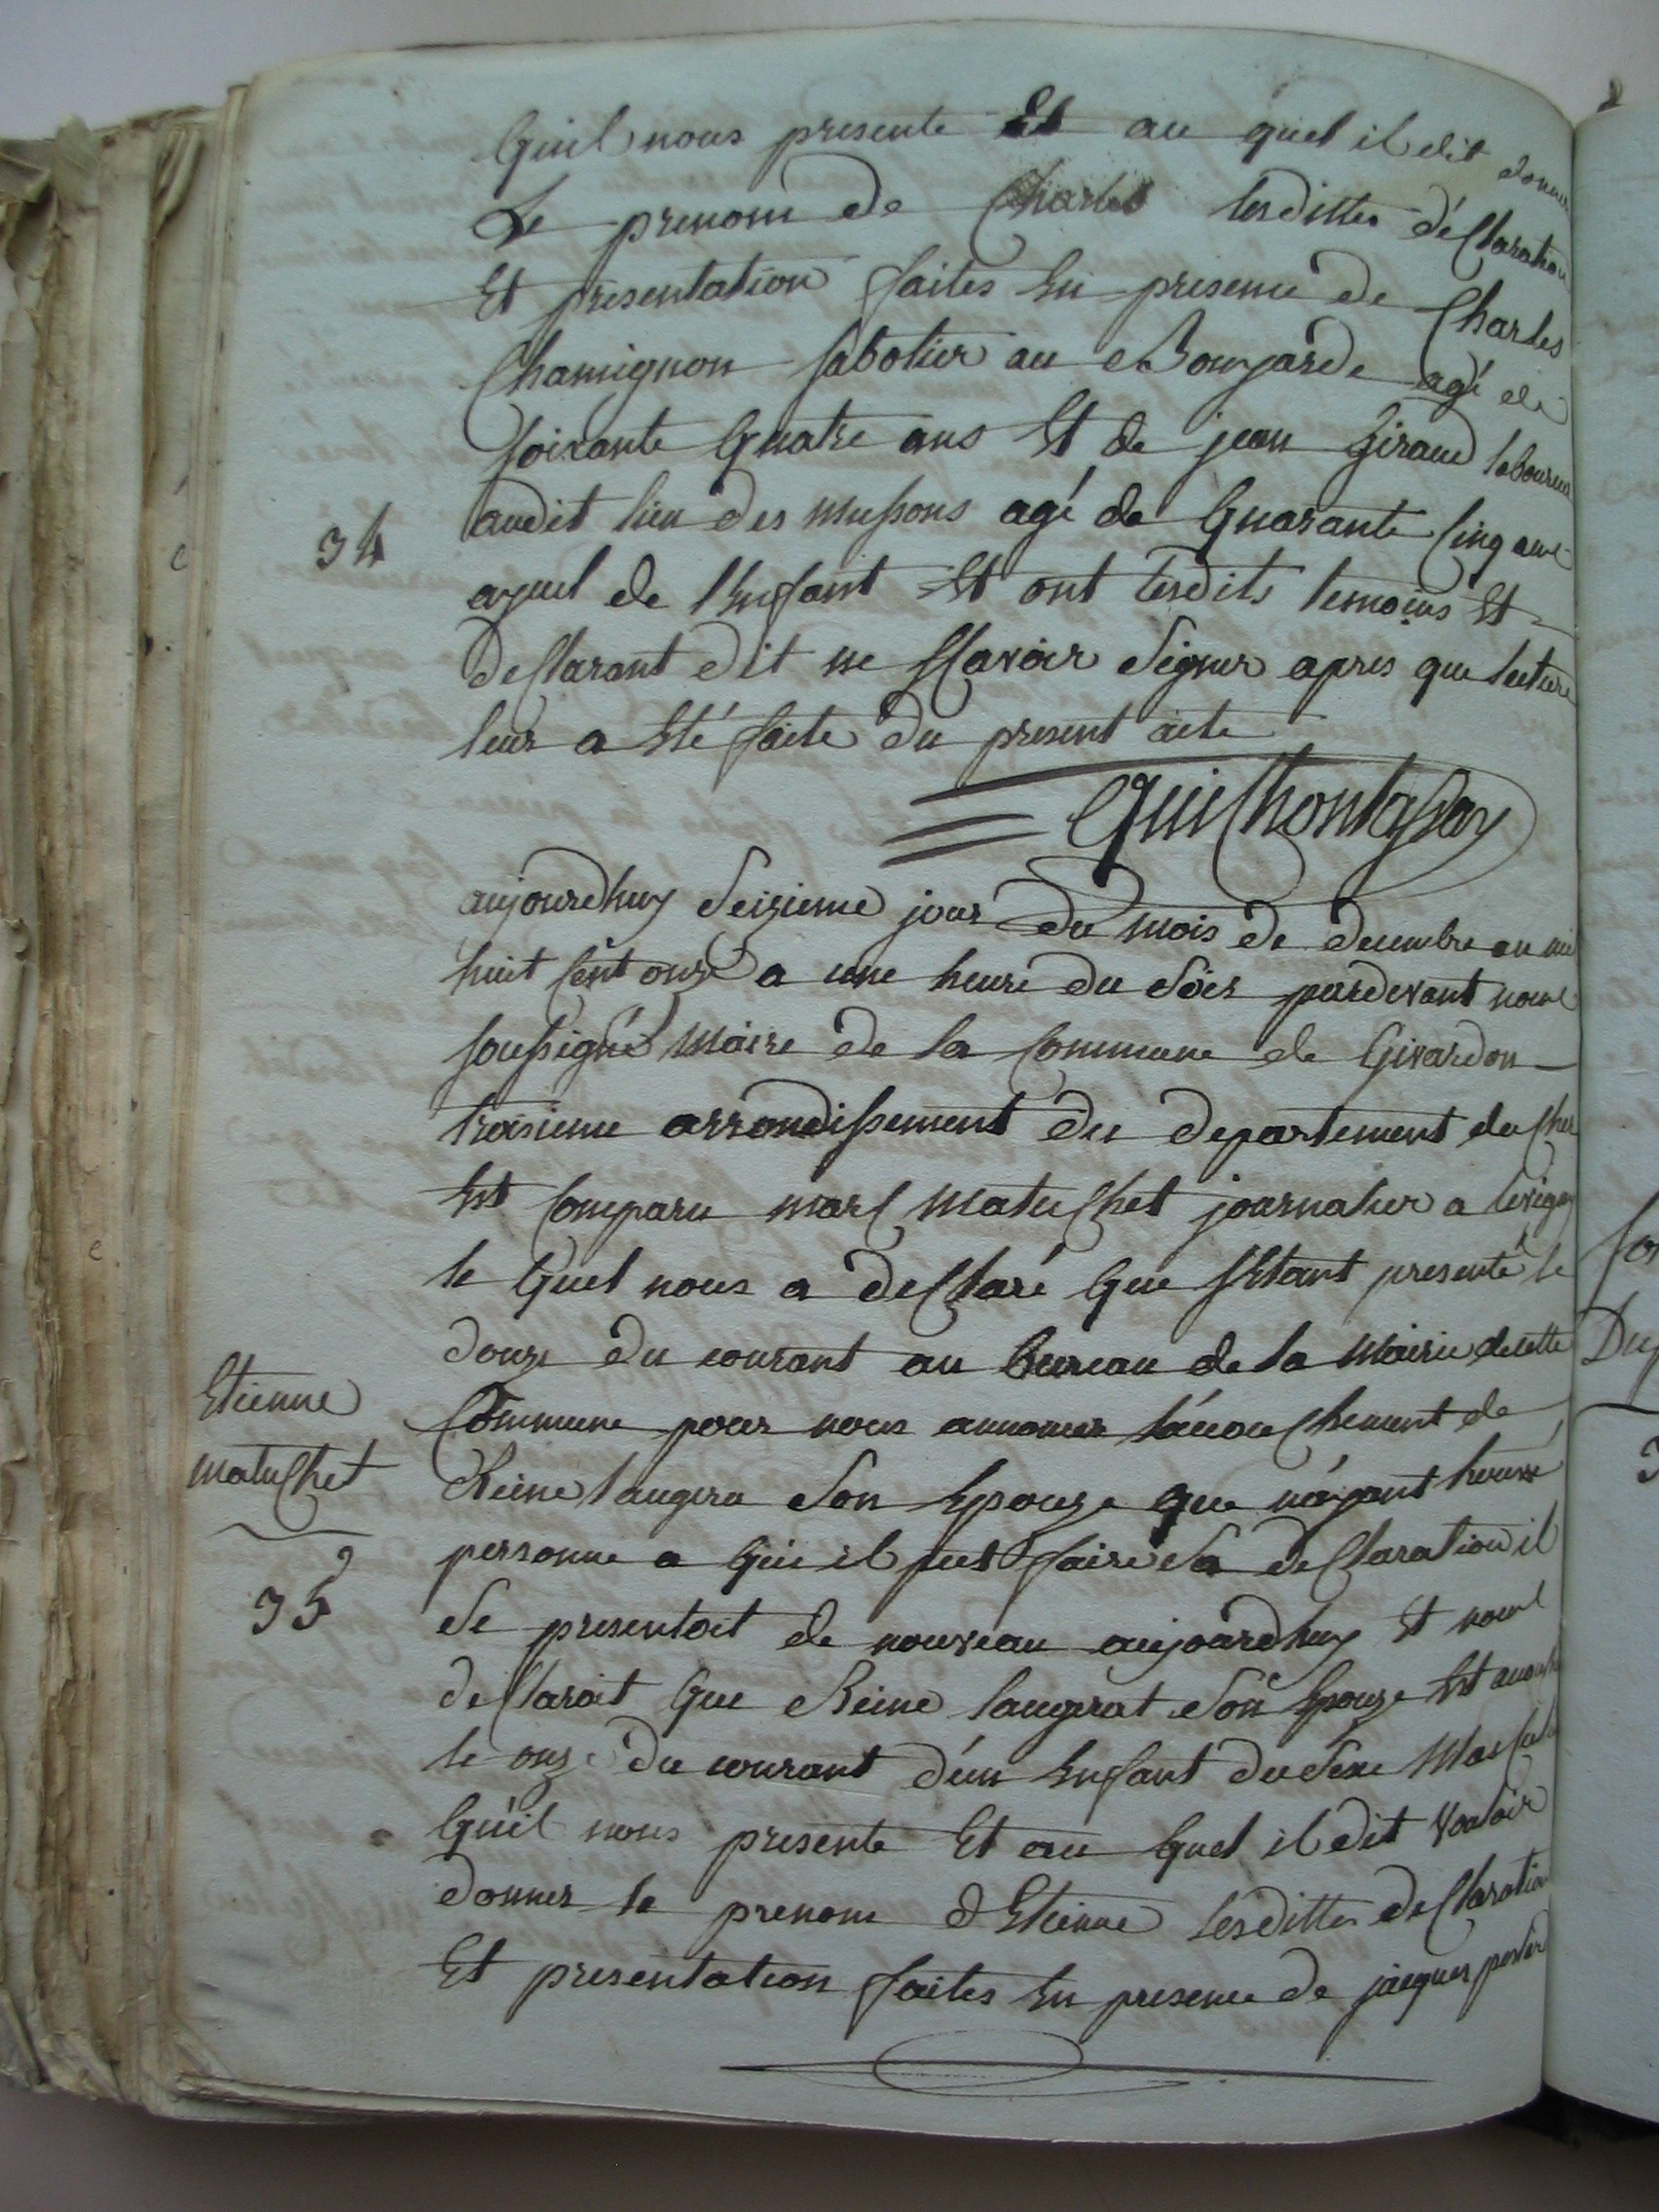 Quil nous presente Et au quel il dit donner
Le prenom de Charles lesdittes declaration
Et presentation faites En presence de Charles
Chamignon sabotier au Bougarde agé de
soixante Quatre ans Et de jean Giraud laboureur
audit lieu des mussons agé de Quarante Cinq ans
34
ayeul de l'Enfant Et ont lesdits temoins Et
declarant dit ne scavoir signer apres que lecture
leur a Eté faite du present acte
aujourdhuy seizieme jour du mois de decembre an mil
huit Cent onze a une heure du soir pardevant nous
soussigné Maire de la Commune de Givardon
troisieme arrondissement du departement du Cher
Est Comparu marc Matuchet journalier a
le Quel nous a declaré Que sEtant presenté le
douze du courant au bureau de la Mairie de cette
Etienne
Commune pour nous annoncer l'accouchement de
matuchet
Reine laugera son Epouze que n'ayant trouvé
personne a Qui il put faire sa declaration il
35
se presentoit de nouveau aujourdhuy Et nous
declaroit Que Reine laugerat son Epouze Est
le onze du courant d'un Enfant du sexe Masculin
Qu'il nous presente Et au Quel il dit vouloir
donner le prenom d'Etienne lesdittes declaration
Et presentation faites En presence de jacques